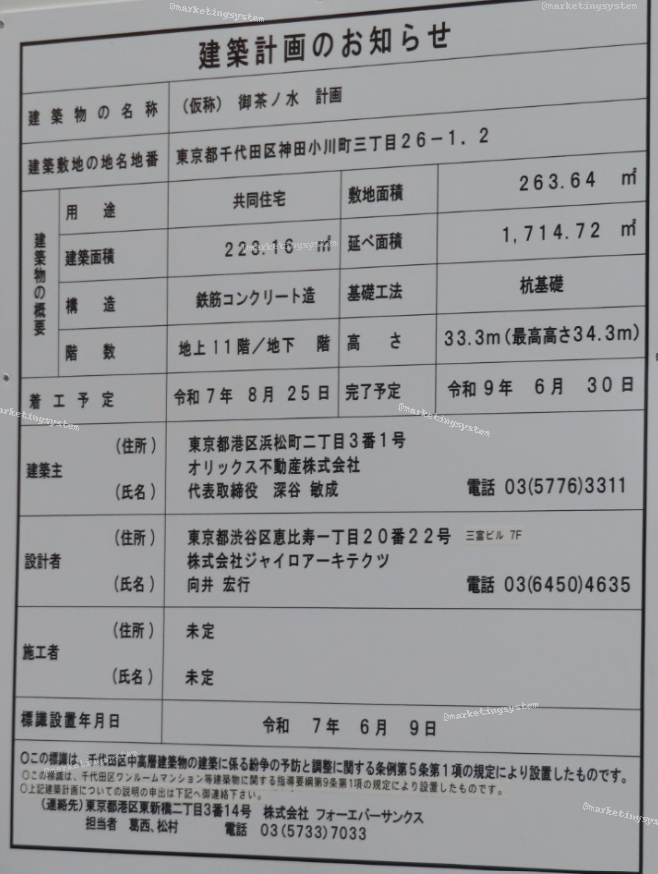 建築計画のお知らせ
建築物の名称 (仮称) 御茶ノ水 計画
建築敷地の地名地番 東京都千代田区神田小川町三丁目26-1.2
建築物の概要
用途 共同住宅 敷地面積 263.64 ㎡
建築面積 223.16 ㎡ 延べ面積 1,714.72 ㎡
構造 鉄筋コンクリート造 基礎工法 杭基礎
階数 地上11階/地下 階 高さ 33.3m(最高高さ34.3m)
着工予定 令和7年 8月 25日 完了予定 令和9年 6月 30日
建築主 (住所) 東京都港区浜松町二丁目3番1号
オリックス不動産株式会社
(氏名) 代表取締役 深谷 敏成 電話 03(5776)3311
設計者 (住所) 東京都渋谷区恵比寿一丁目20番22号 三富ビル 7F
株式会社ジャイロアーキテクツ
(氏名) 向井 宏行 電話 03(6450)4635
施工者 (住所) 未定
(氏名) 未定
標識設置年月日 令和 7年 6月 9日
○この標識は、千代田区中高層建築物の建築に係る紛争の予防と調整に関する条例第5条第1項の規定により設置したものです。
○この標識は、千代田区ワンルームマンション等建築物に関する指導要綱第9条第1項の規定により設置したものです。
○上記建築計画についての説明の申出は下記へ御連絡下さい。
(連絡先)東京都港区東新橋二丁目3番14号 株式会社 フォーエバーサンクス
担当者 葛西、松村 電話 03(5733)7033
@marketingsystem
@marketingsystem
@marketingsystem
@marketingsystem
@marketingsystem
@marketingsystem